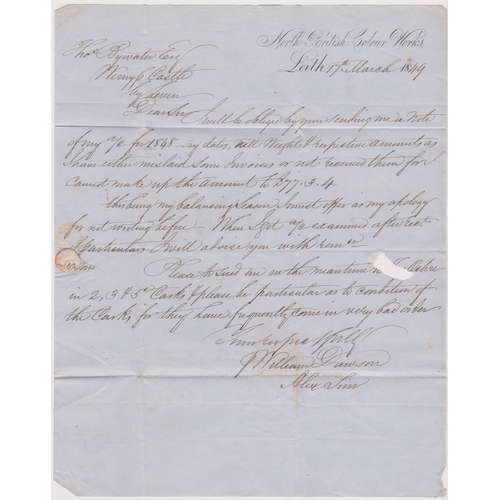 North British Colour Works
Leith 17th March 1849
Thos Bywater Esq
Wemyss Castle
by Leven
Dear Sir I will be obliged by your sending me a Note
of my a/c for 1848 say dates, nett Weights & respective amounts as
I have either mislaid some Invoices or not received them for I
cannot make up the amount to £77.3.4
this being my balancing season I must offer as my apology
for not writing before. When I get a/c examined after rect
of particulars I will advise you with remce
Please to send me in the meantime Ochre
in 2, 3 & 5 Casks & please be particular as to condition of
the Casks for they have frequently come in very bad order
Yours respectfully
William Dawson
Alex Sim